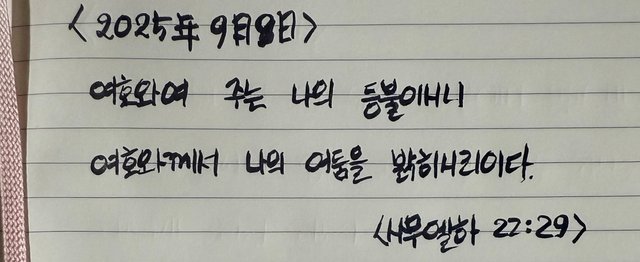 <2025年 9月8日>
여호와여 주는 나의 등불이시니
여호와께서 나의 어둠을 밝히시리이다.
<사무엘하 22:29>